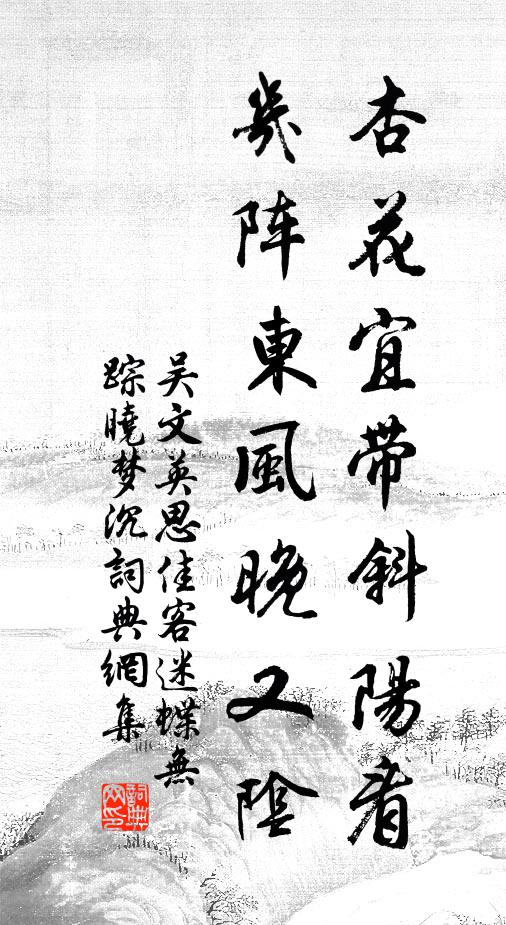 杏花宜带斜陽看
幾阵東風晚又陰
吴文英思佳客迷蝶無
踪曉梦沉詞典網集